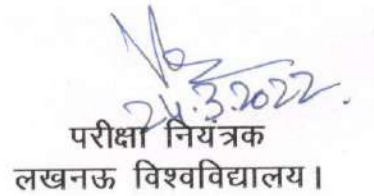 24.3.2022.
परीक्षा नियंत्रक
लखनऊ विश्वविद्यालय।